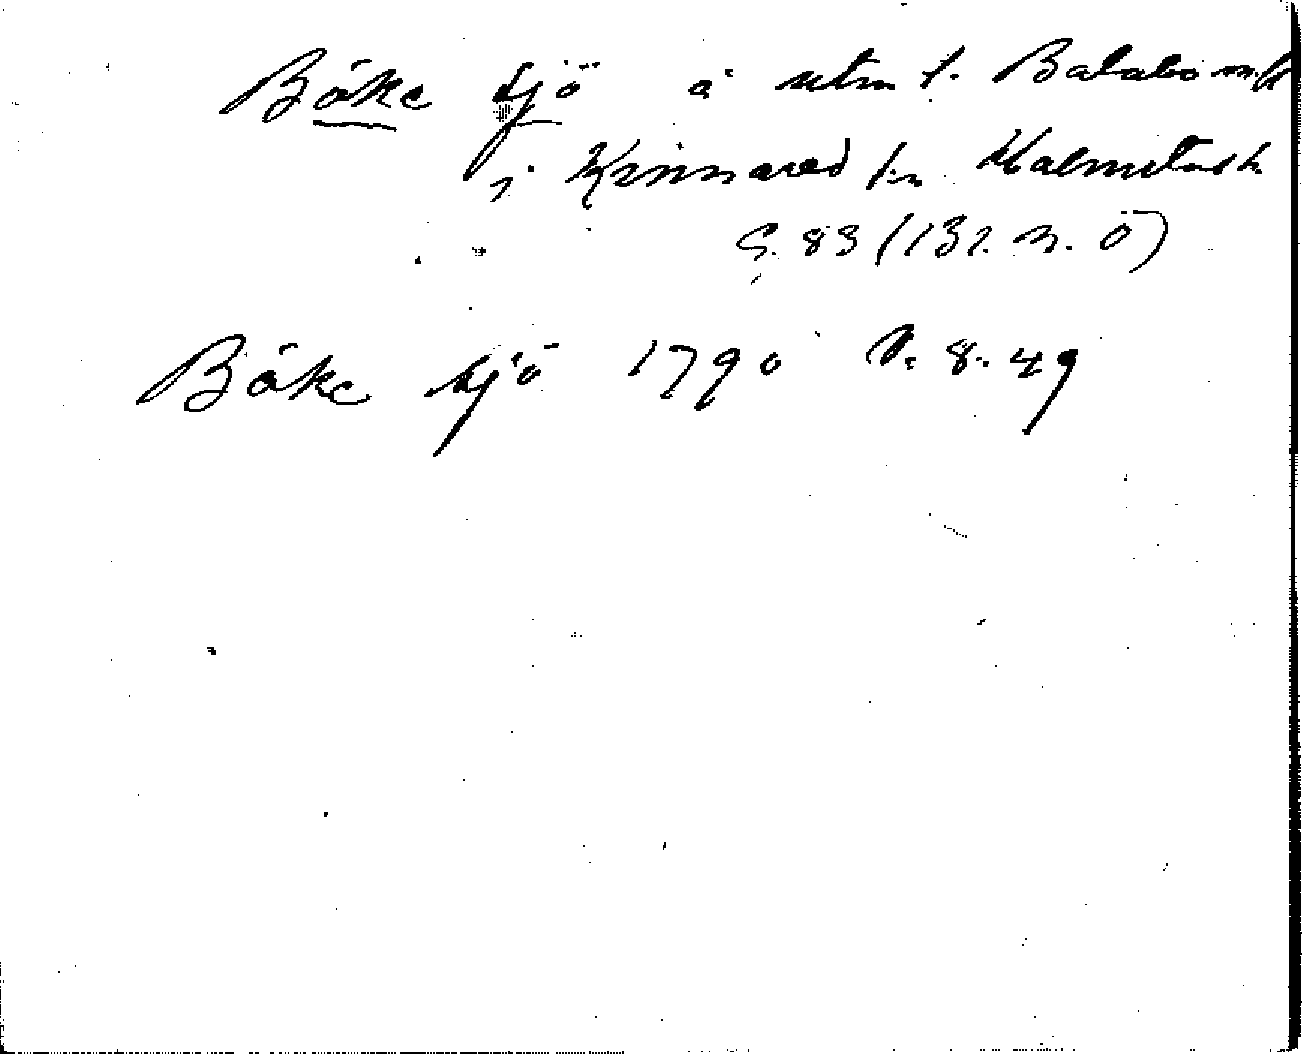 Båke sjö å utm t. Balabo
i Kinnared sn Halmstads h
S. 83 (131. n. ö)
Båke sjö 1790 s. 8. 49